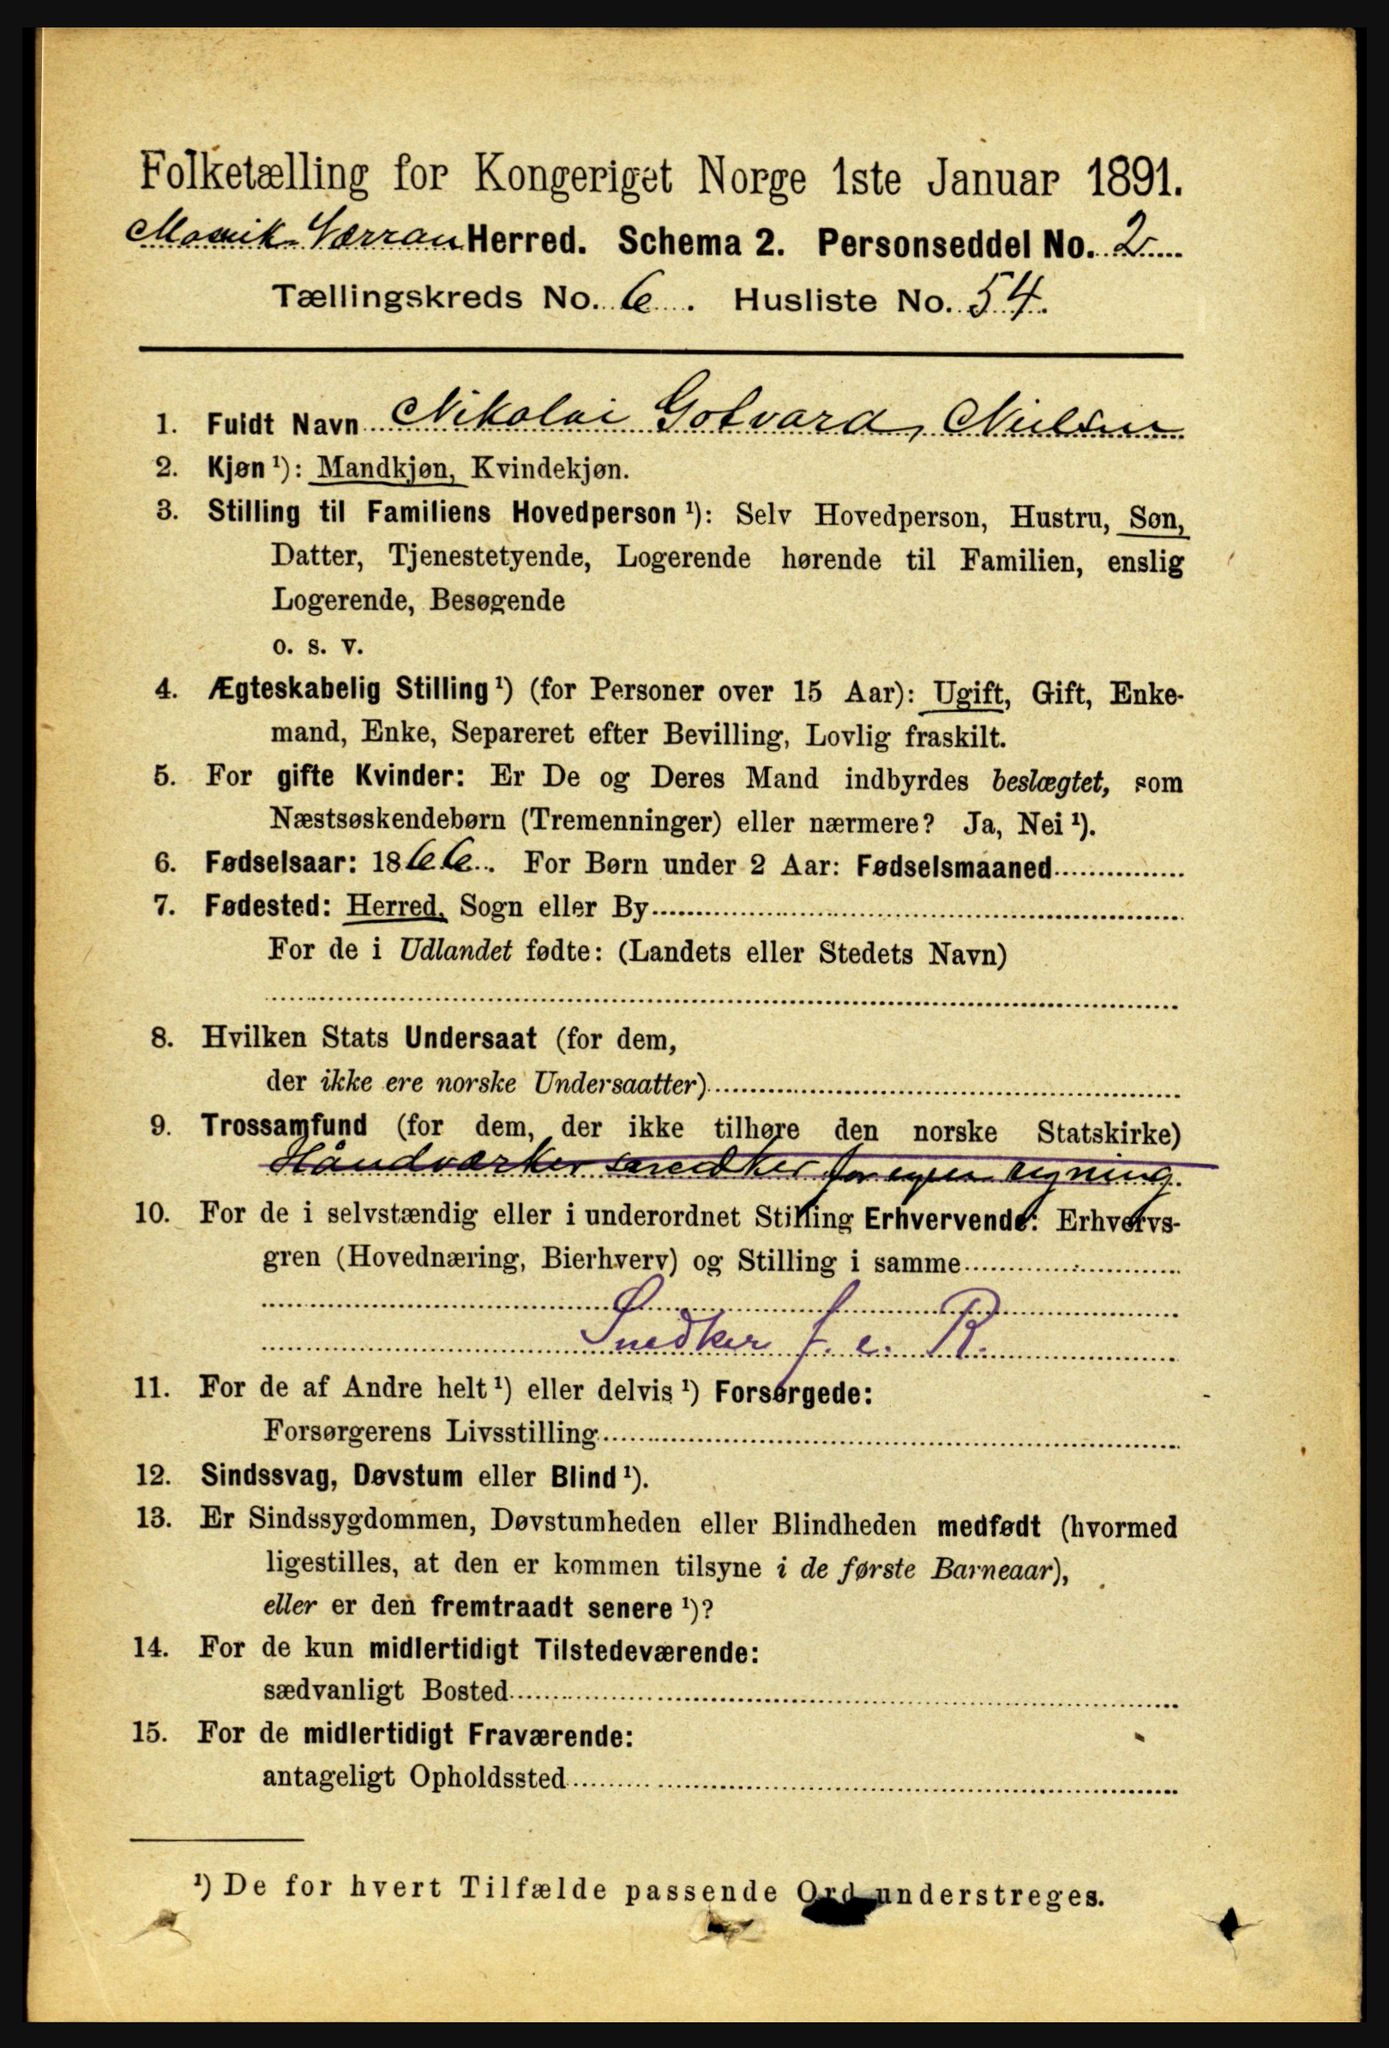 Folketælling for Kongeriget Norge 1ste Januar 1891.
Mosvik Værran Herred. Schema 2. Personseddel No. 2
Tællingskreds No. 6. Husliste No. 54.
1. Fuldt Navn Nikolai Gotvard Nielsen
2. Kjøn ¹): Mandkjøn, Kvindekjøn.
3. Stilling til Familiens Hovedperson ¹): Selv Hovedperson, Hustru, Søn,
Datter, Tjenestetyende, Logerende hørende til Familien, enslig
Logerende, Besøgende
o. s. v.
4. Ægteskabelig Stilling ¹) (for Personer over 15 Aar): Ugift, Gift, Enke-
mand, Enke, Separeret efter Bevilling, Lovlig fraskilt.
5. For gifte Kvinder: Er De og Deres Mand indbyrdes beslægtet, som
Næstsøskendebørn (Tremenninger) eller nærmere? Ja, Nei ¹).
6. Fødselsaar: 1866. For Børn under 2 Aar: Fødselsmaaned
7. Fødested: Herred, Sogn eller By
For de i Udlandet fødte: (Landets eller Stedets Navn)
8. Hvilken Stats Undersaat (for dem,
der ikke ere norske Undersaatter)
9. Trossamfund (for dem, der ikke tilhøre den norske Statskirke)
Håndværker snedker for egen regning.
10. For de i selvstændig eller i underordnet Stilling Erhvervende: Erhvervs-
gren (Hovednæring, Bierhverv) og Stilling i samme
Snedker f. e. R.
11. For de af Andre helt ¹) eller delvis ¹) Forsørgede:
Forsørgerens Livsstilling
12. Sindssvag, Døvstum eller Blind ¹).
13. Er Sindssygdommen, Døvstumheden eller Blindheden medfødt (hvormed
ligestilles, at den er kommen tilsyne i de første Barneaar),
eller er den fremtraadt senere ¹)?
14. For de kun midlertidigt Tilstedeværende:
sædvanligt Bosted
15. For de midlertidigt Fraværende:
antageligt Opholdssted
¹) De for hvert Tilfælde passende Ord understreges.